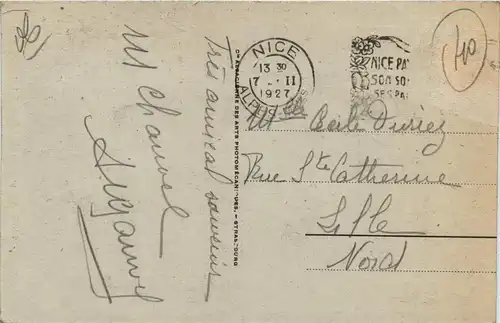 Très amical souvenir
M Chauvel
NICE
13 30
7 - II
1927
ALPES-MMES
NICE PA
SON SO
SES PA
40
COMPAGNIE DES ARTS PHOTOMÉCANIQUES. - STRASBOURG
Rue Ste Catherine
Lille
Nord